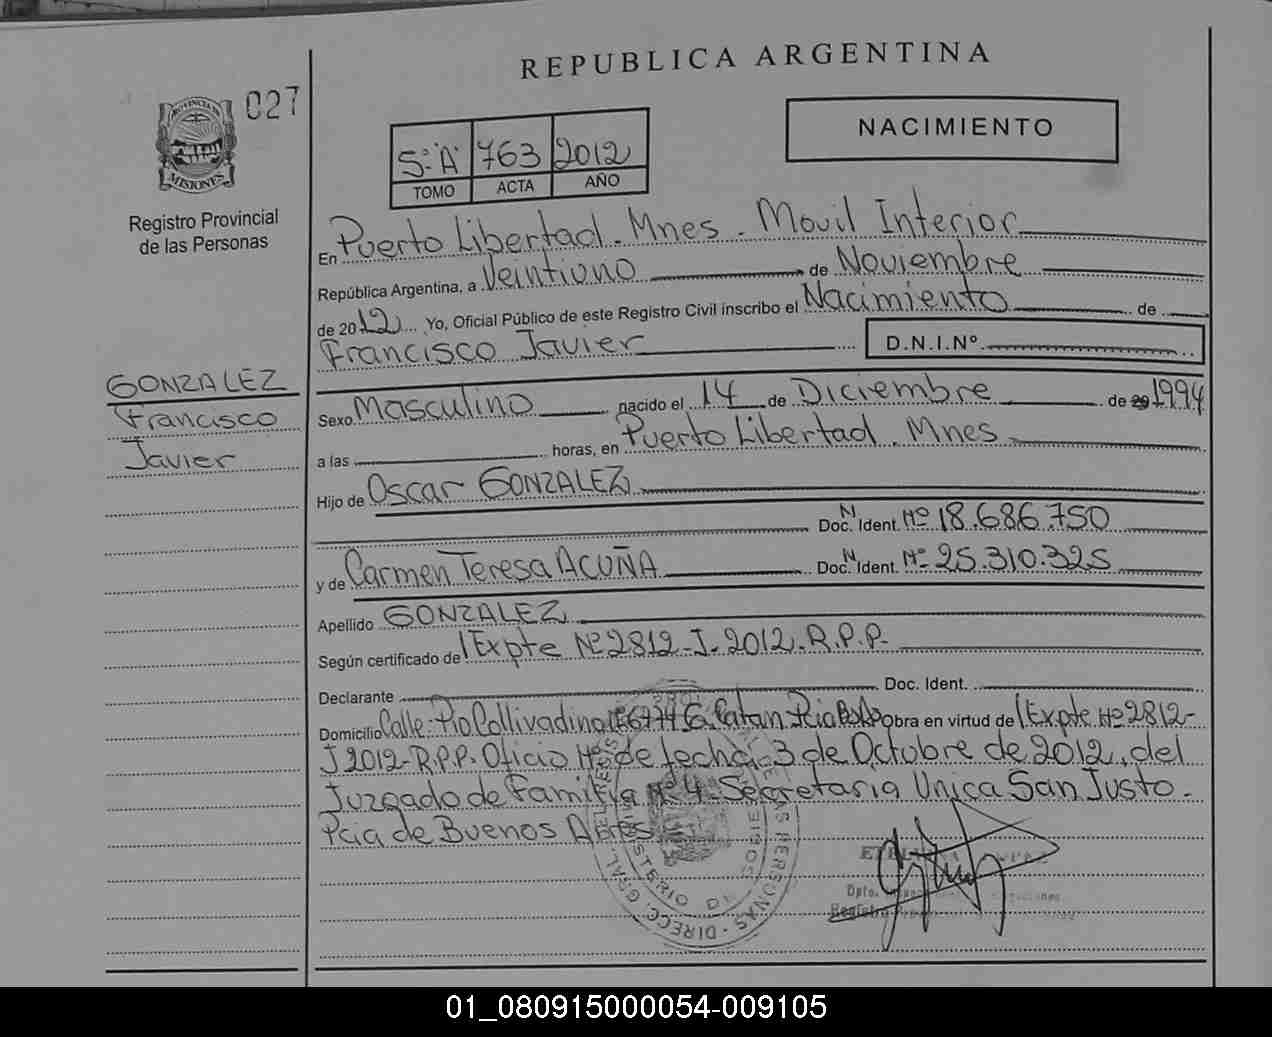 REPUBLICA ARGENTINA
027
PROVINCIA DE
MISIONES
Registro Provincial
de las Personas
NACIMIENTO
5º "A" 763 2012
TOMO ACTA AÑO
En Puerto Libertad. Mnes. Movil Interior
República Argentina, a Veintiuno de Noviembre
de 2012 Yo, Oficial Público de este Registro Civil inscribo el Nacimiento de
Francisco Javier D.N.I.Nº
GONZALEZ
Francisco
Javier
Sexo Masculino nacido el 14 de Diciembre de 20 1994
a las horas, en Puerto Libertad. Mnes
Hijo de Oscar GONZALEZ
Doc. N Ident. Nº 18.686.750
y de Carmen Teresa ACUÑA Doc. N Ident. Nº 25.310.325
Apellido GONZALEZ
Según certificado de Expte Nº 2812-J-2012. R.P.P.
Declarante Doc. Ident.
Domicilio Calle: Pio Collivadino 6774 G. Catan Pcia Obra en virtud de Expte Nº 2812-
J 2012-R.P.P. Oficio Nº de fecha 3 de Octubre de 2012, del
Juzgado de Familia Nº 4 Secretaria Unica San Justo.
Pcia de Buenos Aires
MINISTERIO DE GOBIERNO
DIRECC. GRAL. DEL REG. PROV. DE LAS PERSONAS
Dpto.
Registro
01_080915000054-009105